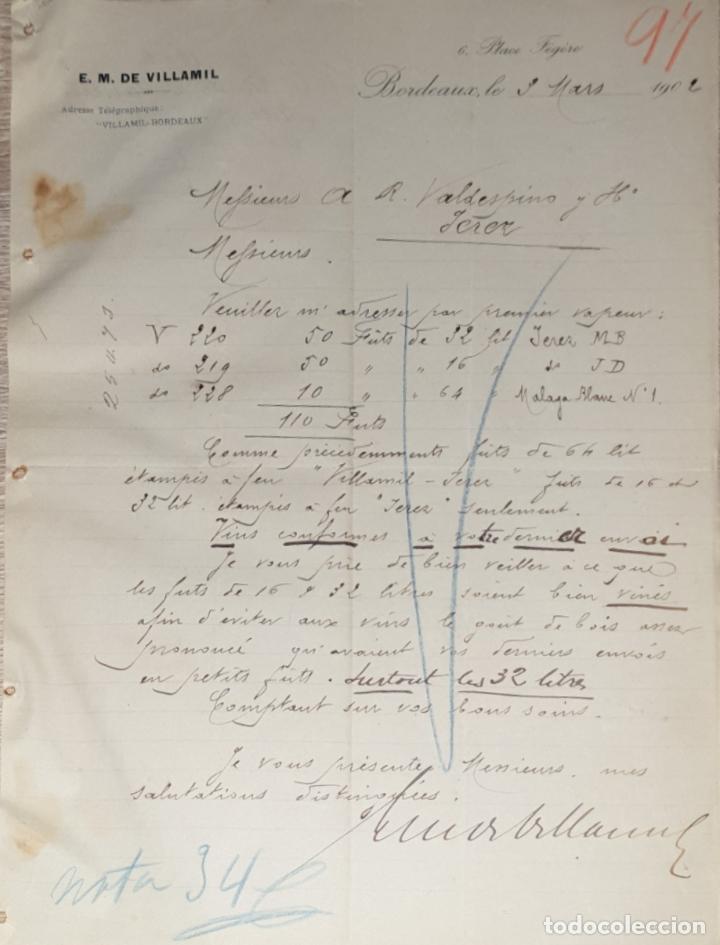 97
6, Place Fégère
E. M. DE VILLAMIL
Bordeaux, le 3 Mars 1902
Adresse Télégraphique:
"VILLAMIL-BORDEAUX"
Messieurs A R. Valdespino y Hº
Jerez
Messieurs.
Veuillez m'adresser par premier vapeur:
V 220 50 Fûts de 32 lit Jerez MB
do 219 50 " " 16 " do JD
do 228 10 " " 64 " Malaga Blanc Nº1.
110 Futs
Comme précédemments futs de 64 lit
étampés à feu "Villamil-Jerez" futs de 16 et
32 lit. étampés à feu "Jerez" seulement.
Vins conformes à votre dernier envoi
Je vous prie de bien veiller à ce que
les futs de 16 & 32 litres soient bien vinés
afin d'éviter aux vins le goût de bois assez
prononcé qu'avaient vos derniers envois
en petits futs. Surtout les 32 litres
Comptant sur vos bons soins.
Je vous présente, Messieurs, mes
salutations distinguées.
nota 34
todocoleccion
todocoleccion.net